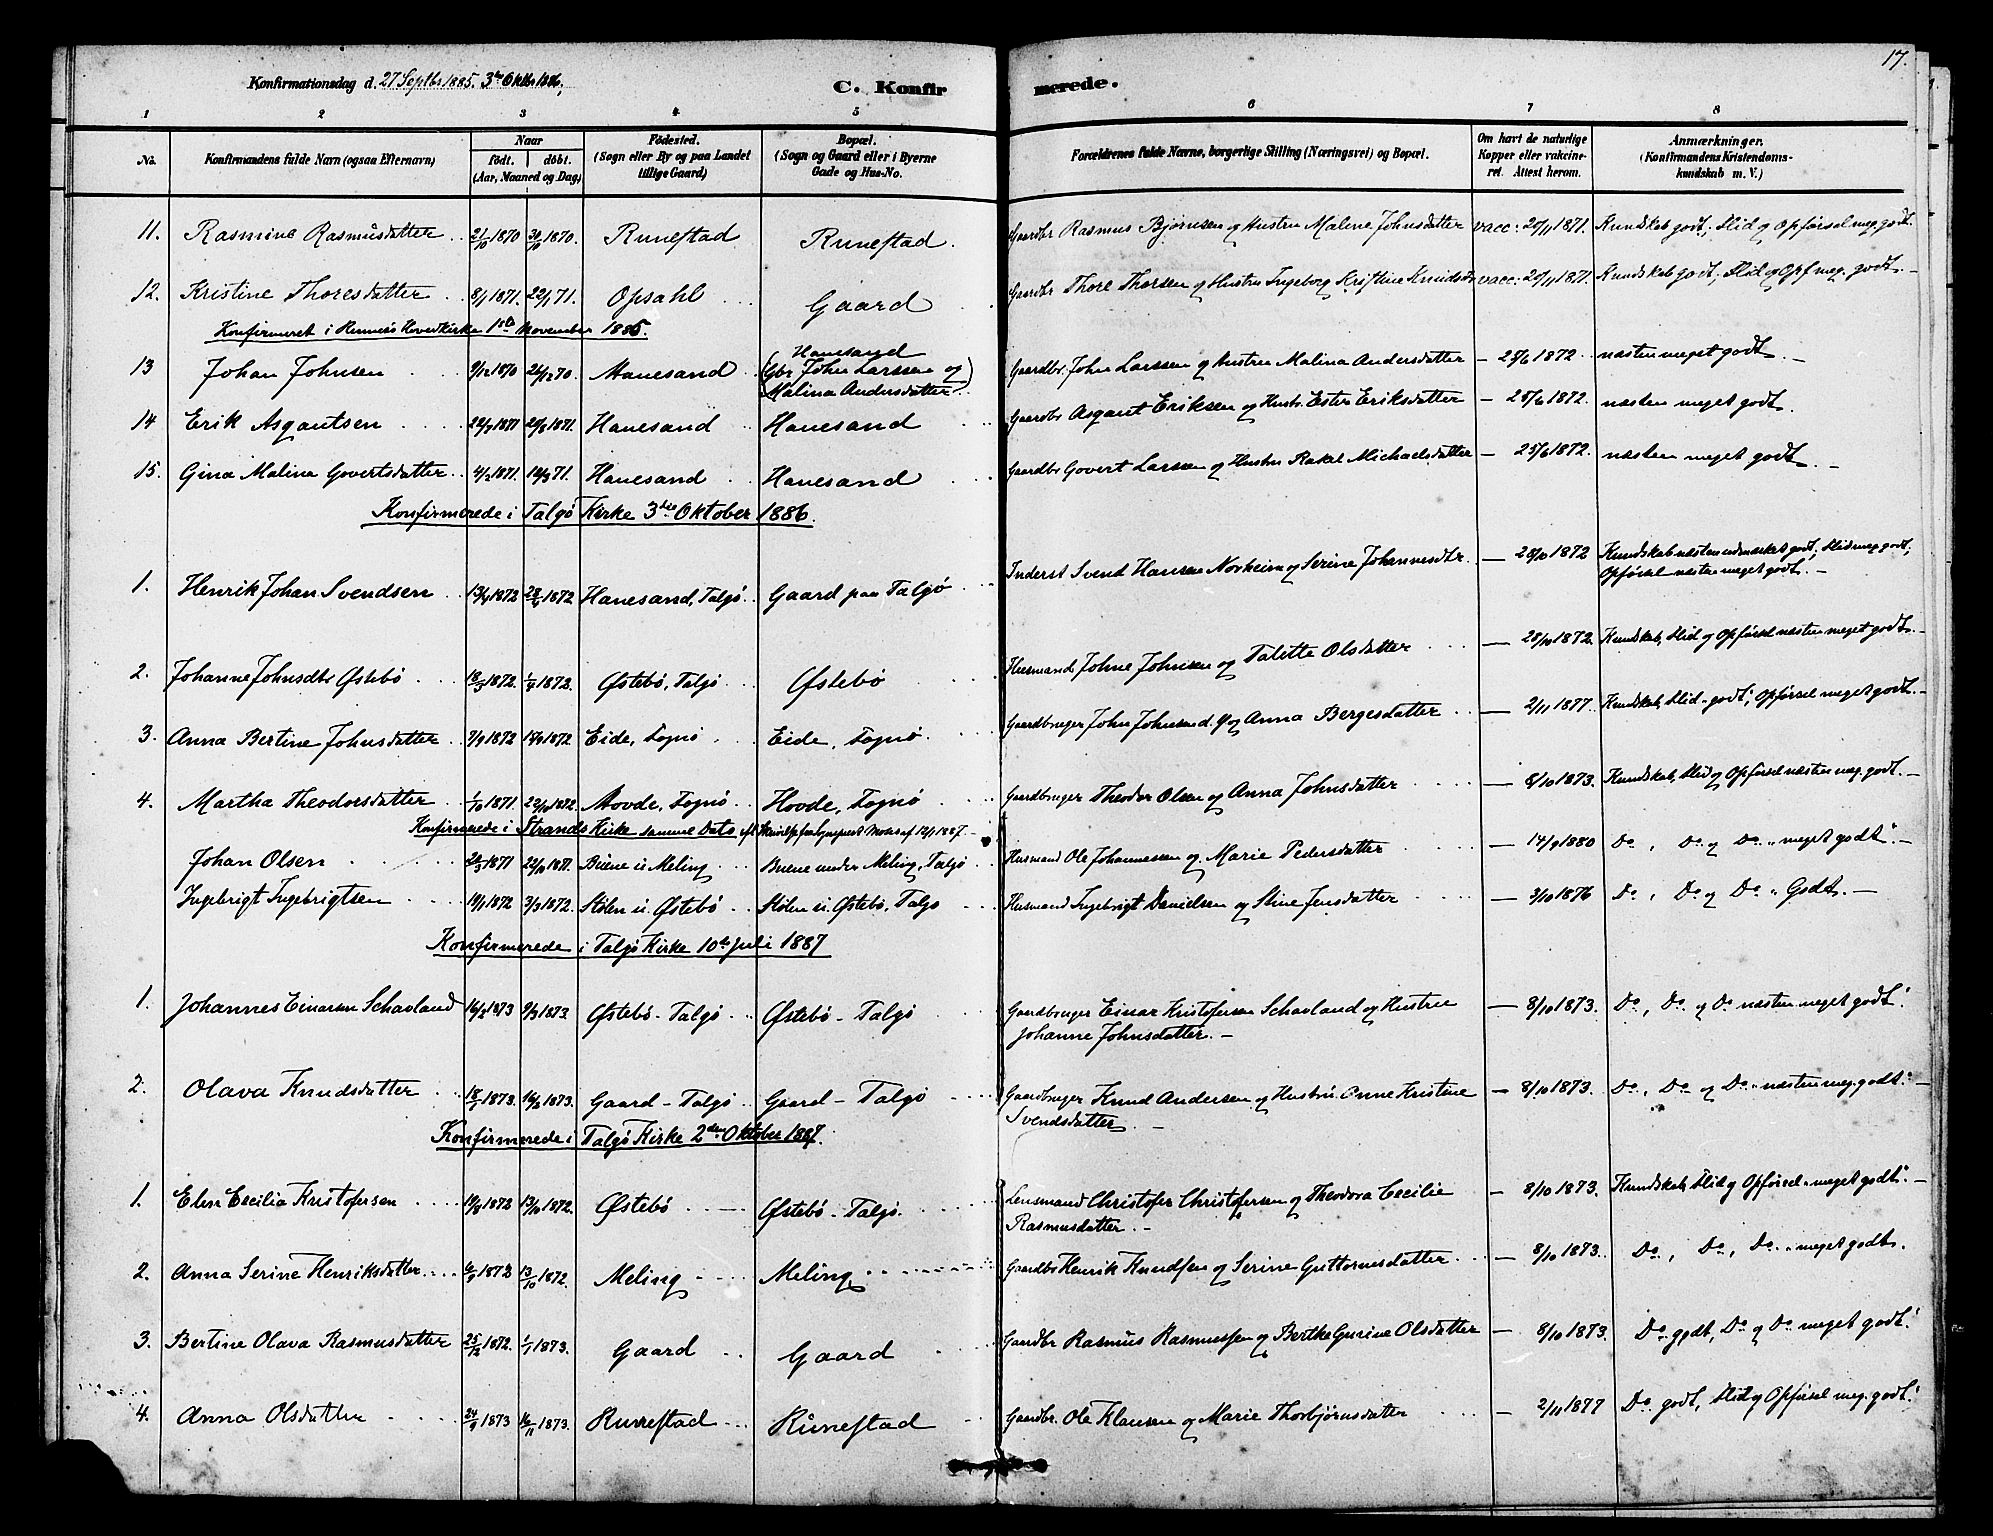 17.
Konfirmationsdag d. 27 Septbr 1885. 3die Oktbr 1886,
C. Konfirmerede.
1 2 3 4 5 6 7 8
No. Konfirmandens fulde Navn (ogsaa Efternavn) Naar født. døbt. (Aar, Maaned og Dag) Fødested. (Sogn eller By og paa Landet tillige Gaard) Bopæl. (Sogn og Gaard eller i Byerne Gade og Hus-No. Forældrenes fulde Navne, borgerlige Stilling (Næringsvei) og Bopæl. Om havt de naturlige Kopper eller vakcineret. Attest herom. Anmærkninger. (Konfirmandens Kristendomskundskab m. V.)
11. Rasmine Rasmusdatter 21/10 1870 30/10 1870. Runestad Runestad. Gaardbr Rasmus Bjørnsen og Hustru Malene Johnsdatter vacc: 20/11 1871. Kundskab godt; Flid og Opførsel meg. godt.
12. Kristine Thoresdatter 8/1 1871. 22/1 71. Opsahl Gaard Gaardbr Thore Thorsen og Hustru Ingeborg Kristine Knudsdtr vacc: 20/11 1871. Kundskab godt; Flid og Opf. meg. godt. -
Konfirmeret i Hennesø Hovedkirke 1ste November 1885.
13 Johan Johnsen 9/12 1870 26/12 70. Hanesand Hanesand (Gbr. John Larssen og Malina Andersdatter) Gaardbr. John Larssen og Hustru Malina Andersdatter - 25/6 1872. næsten meget godt. -
14 Erik Asgautsen 22/7 1871 20/8 1871. Hanesand Hanesand Gaardbr Asgaut Eriksen og Hustr. Ester Eriksdatter - 25/6 1872. næsten meget godt.
15. Gina Malina Govertsdatter 4/2 1871. 12/3 71. Hanesand Hanesand Gaardbr Govert Larssen og Hustru Rakel Michaelsdatter - 25/6 1872. næsten meget godt. -
Konfirmerede i Talgø Kirke 3die Oktober 1886.
1. Henrik Johan Svendsen 13/4 1872 28/4 1872 Hanesand, Talgø Gaard paa Talgø Inderst Svend Hansen Norheim og Serine Johannesdtr. - 28/10 1872 Kundskab næsten udmærket godt; Flid meg. godt; Opførsel næsten meget godt. -
2. Johanne Johnsdtr Østebø 18/3 1872. 1/4 1872. Østebø, Talgø Østebø Husmand Johne Johnsen og Talette Olsdatter - 28/10 1872. Kundskab, Flid og Opførsel næsten meget godt. -
3. Anna Bertine Johnsdatter 7/9 1872 15/9 1872. Eide, Fognø Eide, Fognø Gaardbruger John Johnsen d. y. og Anna Bergesdatter - 2/11 1877. Kundskab, Flid godt; Opførsel meget godt. -
4. Martha Theodorsdatter 1/10 1871. 22/10 1872. Hovde, Fognø Hovde, Fognø Gaardbruger Theodor Olsen og Anna Johnsdatter - 8/10 1873. Kundskab, Flid og Opførsel næsten meg. godt. -
Konfirmerede i Strands Kirke samme Dato
Johan Olsen 1871 22/10 1871. Buene u. Meling Buene under Meling, Talgø Husmand Ole Johannessen og Marie Pedersdatter - 14/9 1880 Do, Do og Do meget godt. -
Ingebrigt Ingebrigtsen 19/1 1872 3/3 1872. Stølen u. Østebø Stølen u. Østebø, Talgø Husmand Ingebrigt Danielsen og Stine Jensdatter - 3/10 1876 Do, Do og Do Godt. -
Konfirmerede i Talgø Kirke 10de Juli 1887
1. Johannes Einarsen Schavland 16/2 1873 9/3 1873. Østebø - Talgø Østebø - Talgø Gaardbruger Einar Kristofersen Schavland og Hustru Johanne Johnsdatter. - - 8/10 1873. Do, Do og Do næsten meget godt.
2. Olava Knudsdatter 18/1 1873. 16/2 1873. Gaard - Talgø Gaard - Talgø Gaardbruger Knud Andersen og Hustru Onne Kristine Svendsdatter. - - 8/10 1873. Do, Do og Do næsten meg. godt. -
Konfirmerede i Talgø Kirke 2den Oktober 1887.
1. Elen Cecilia Kristofersen 19/8 1872 13/10 1872. Østebø Østebø - Talgø. Lensmand Christofer Christofersen og Theodora Cecilie Rasmusdatter. - - 8/10 1873. Kundskab, Flid og Opførsel meget godt. -
2. Anna Serine Henriksdatter 6/9 1872 13/10 1872. Meling Meling Gaardbr Henrik Knudsen og Serine Guttormsdatter - 8/10 1873. Do, Do, Do meget godt.
3. Bertine Olava Rasmusdatter 25/12 1872. 1/1 1873. Gaard Gaard Gaardbr Rasmus Rasmussen og Berthe Gurine Olsdatter - 8/10 1873. Do godt, Do og Do meget godt.
4. Anna Olsdatter 24/9 1873 16/11 1873. Runestad Runestad Gaardbr. Ole Klausen og Marie Thorbjørnsdatter - 2/11 1877 Do godt, Flid og Opførsel meg. godt.